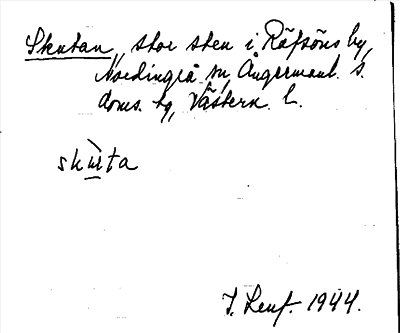 Skutan, stor sten i Räfsöns by,
Nordingrå sn, Ångermanl. s.
doms. tg, Västern. l.
skùta
J. Leuf. 1944.